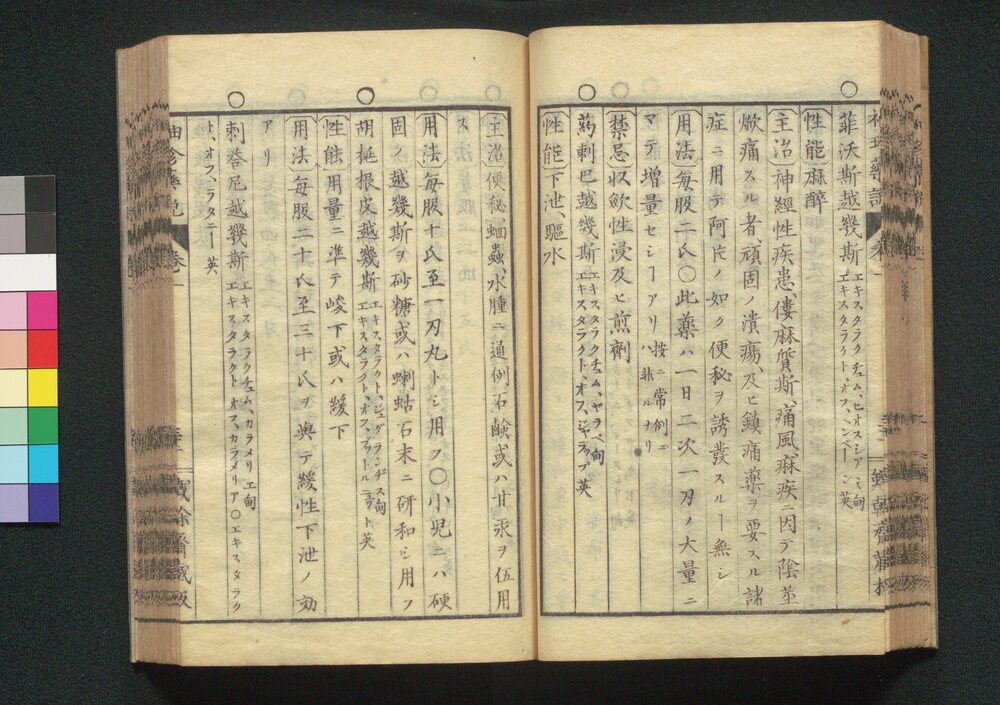 菲沃斯越幾斯 エキスタラクチュム、ヒオスシアミ 甸
エキスタラクト、オフ、ヘンベーン 英
性能 麻醉
主治 神經性疾患、僂麻質斯、痛風、痳疾ニ因テ陰莖
焮痛スル者、頑固ノ潰瘍、及ヒ鎮痛藥ヲ要スル諸
症ニ用テ阿片ノ如ク便秘ヲ誘發スルヿ無シ
用法 每服二氏〇此藥ハ一日二次一刃ノ大量ニ
マテ増量セシヿアリ 按ニ常例ニ
ハ非ルナリ
禁忌 収歛性浸及ヒ煎劑
葯剌巴越幾斯 エキスタラクチュム、ヤラペ 甸
エキスタラクト、オフ、ジャラップ 英
性能 下泄、驅水
主治 便秘、蛔蟲、水腫ニ通例石鹸或ハ甘汞ヲ伍用
ス
用法 每服十氏至一刃丸トシ用フ〇小児ニハ硬
固ノ越幾斯ヲ砂糖或ハ喇蛄石末ニ研和シ用フ
胡桃根皮越幾斯 エキスタラクト、ジュグランヂス 甸
エキスタラクト、オフ、バットルニュット 英
性能 用量ニ準テ峻下或ハ緩下
用法 每服二十氏至三十氏ヲ與テ緩性下泄ノ効
アリ
剌荅尼越幾斯 エキスタラクチュム、カラメリエ 甸
エキスタラクト、オフ、カラメリア〇エキスタラク
ト、オフ、ラタニー 英
袖珍藥説 卷一